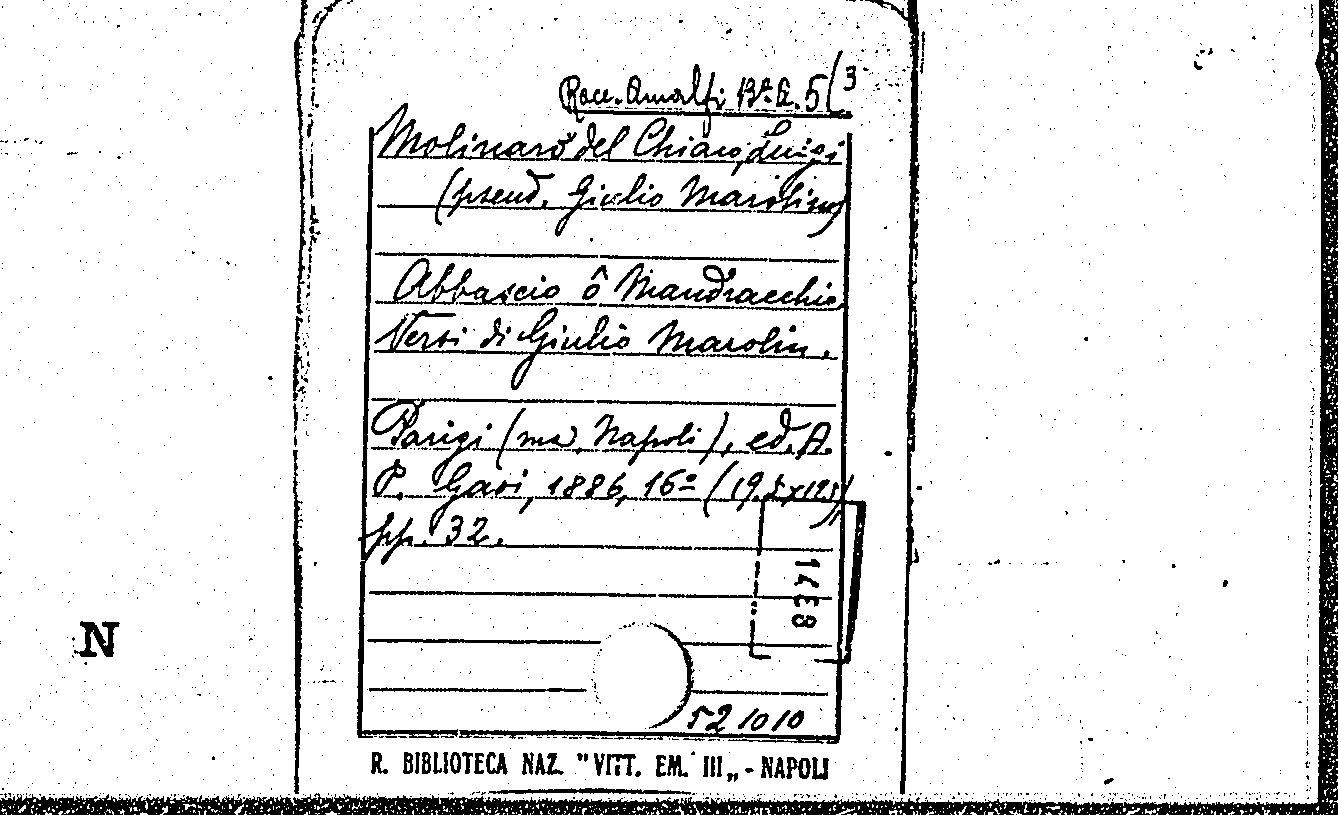 Racc. Amalfi Bª A. 5(3
Molinaro del Chiaro, Luigi
(pseud. Giulio Marolino)
Abbascio ô Mandracchio
Versi di Giulio Marolin.
Parigi (ma, Napoli), ed. A.
P. Gari, 1886, 16º (19.5x12,5)
pp. 32.
1438
N
521010
R. BIBLIOTECA NAZ. "VITT. EM. III„ - NAPOLI